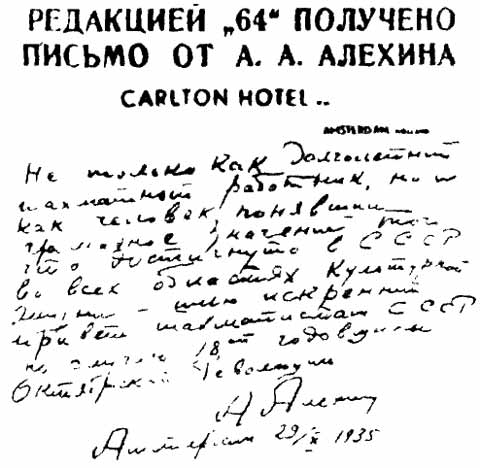 РЕДАКЦИЕЙ „64“ ПОЛУЧЕНО
ПИСЬМО ОТ А. А. АЛЕХИНА
CARLTON HOTEL ..
AMSTERDAM
Не только как долголетний
шахматный работник, но и
как человек, понявший
громадное значение того,
что достигнуто в СССР
во всех областях культурной
жизни, шлю искренний
привет шахматистам СССР
по случаю 18ой годовщины
Октябрьской Революции
А Алехин
Амстердам 29/X 1935